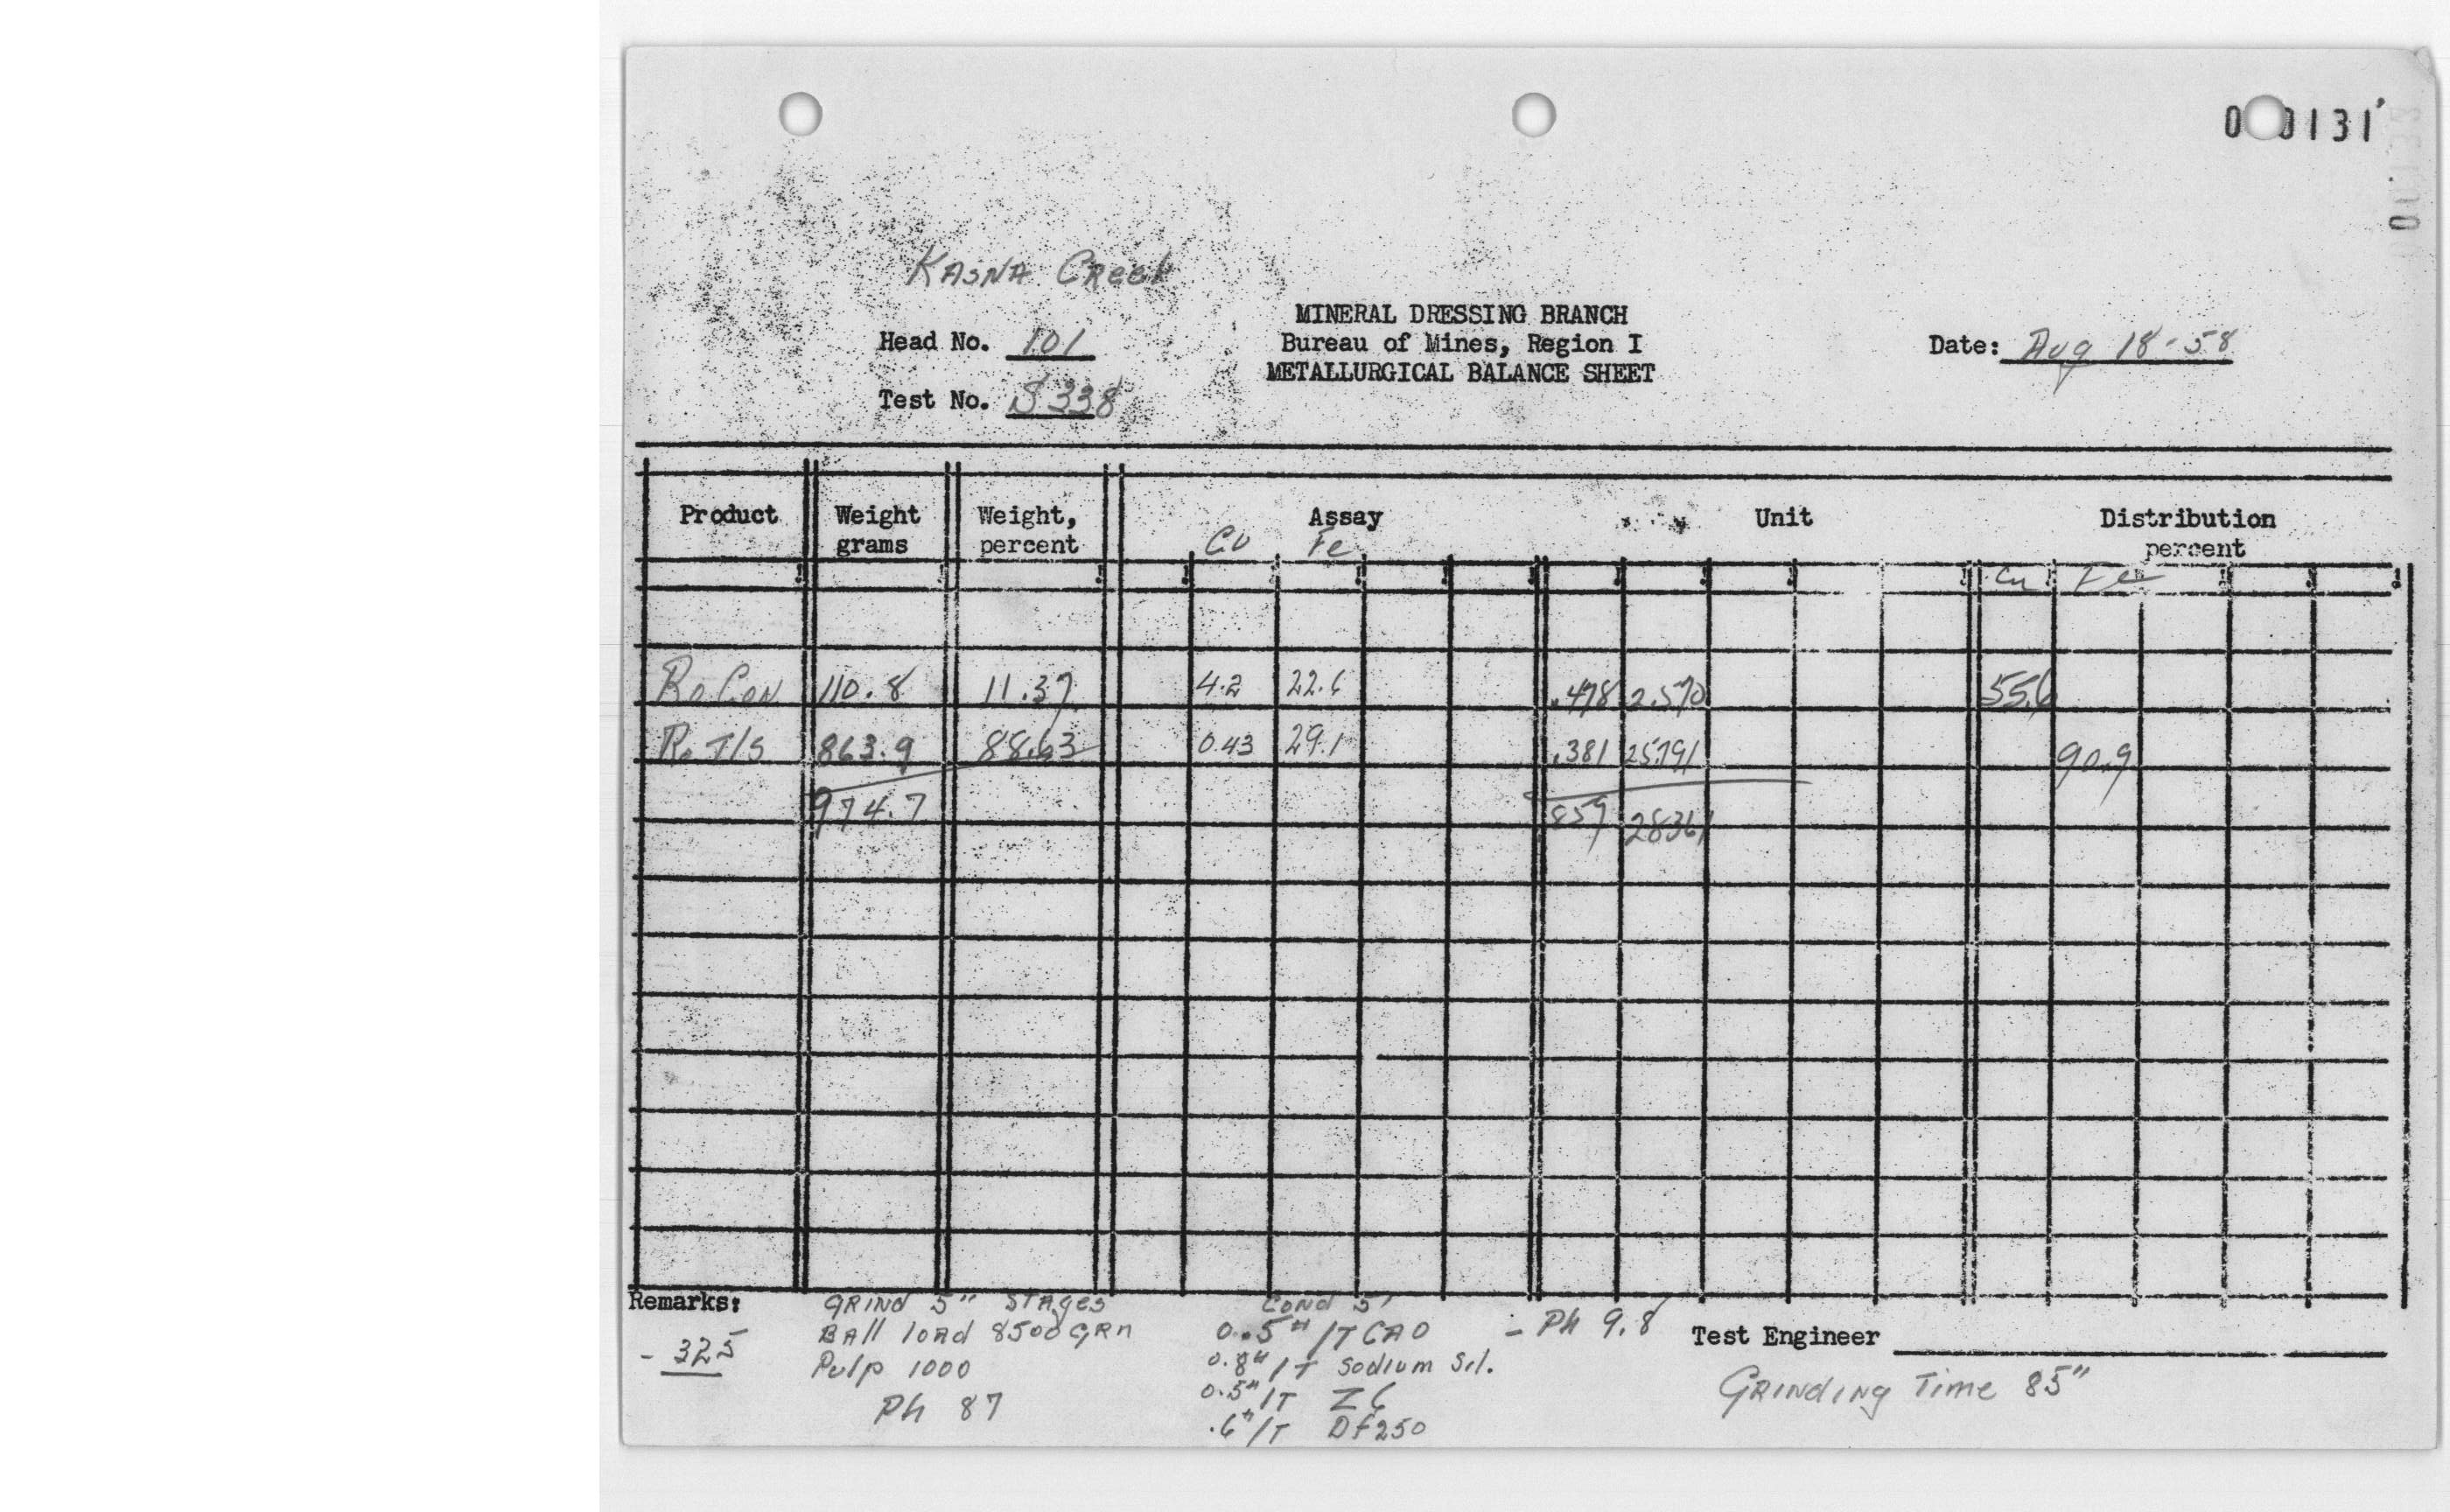 0 0131
Kasna Creek
MINERAL DRESSING BRANCH
Head No. 101 Bureau of Mines, Region I Date: Aug 18-58
METALLURGICAL BALANCE SHEET
Test No. S338
Product Weight grams Weight, percent Assay Unit Distribution percent
Cu Fe Cu Fe
Ro Con 110.8 11.37 4.2 22.6 .478 2.570 55.6
Ro T/S 863.9 88.63 0.43 29.1 .381 25.791 90.9
974.7 859 28361
Remarks: GRIND 5" STAGES Cond 5'
- 325 BAll loAd 8500 GRM 0.5"/T CAO - Ph 9.8 Test Engineer
Pulp 1000 0.8"/T Sodium Sil. GRINdING Time 85"
Ph 87 0.5"/T Z6
.6"/T DF250